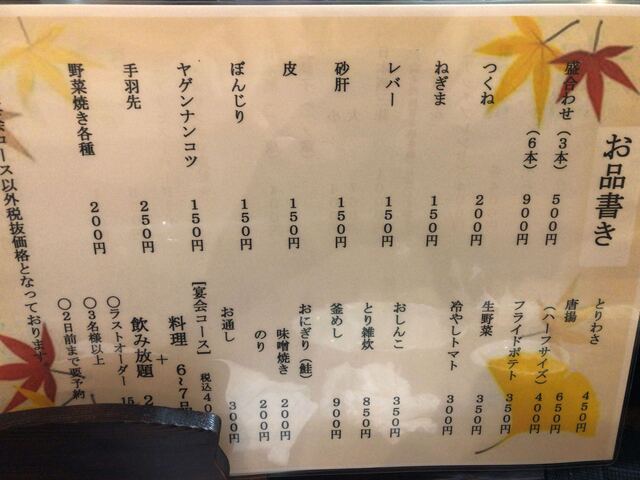 お品書き
盛合わせ（３本） ５００円
（６本） ９００円
つくね ２００円
ねぎま １５０円
レバー １５０円
砂肝 １５０円
皮 １５０円
ぼんじり １５０円
ヤゲンナンコツ １５０円
手羽先 ２５０円
野菜焼き各種 ２００円
とりわさ ４５０円
唐揚 ６５０円
（ハーフサイズ） ４００円
フライドポテト ３５０円
生野菜 ３５０円
冷やしトマト ３００円
おしんこ ３５０円
とり雑炊 ８５０円
釜めし ９００円
おにぎり（鮭）
味噌焼き ２００円
のり ２００円
お通し ３００円
［宴会コース］ 税込４０
料理 ６～７品
＋
飲み放題 ２
〇ラストオーダー １５
〇３名様以上
〇２日前まで要予約
コース以外税抜価格となっております